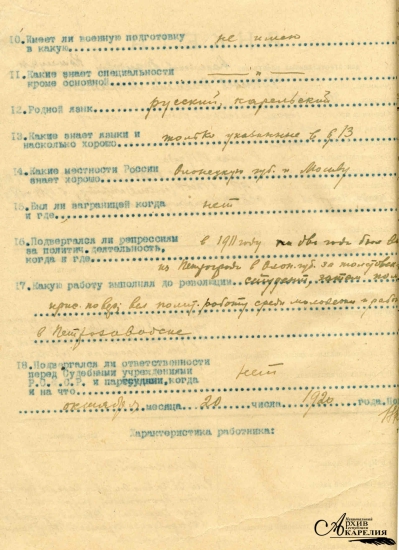 10. Имеет ли военную подготовку не имею
в какую
11. Какие знает специальности — " —
кроме основной
12. Родной язык русский, карельский
13. Какие знает языки и только указанные в § 13
насколько хорошо
14. Какие местности России Олонецкую губ. и Москву
знает хорошо
15. Был ли заграницей когда нет
и где
16. Подвергался ли репрессиям в 1911 году на два года был
за политич. деятельность,
когда и где из Петрограда в Олон. губ. за
17. Какую работу выполнял до революции студент,
вел полит. работу среди молодежи и
в Петрозаводске
18. Подвергался ли ответственности
перед Судебными учреждениями нет
и на что
октября месяца 20 числа 1920 года.
Характеристика работника:
Национальный
АРХИВ
Республики
КАРЕЛИЯ